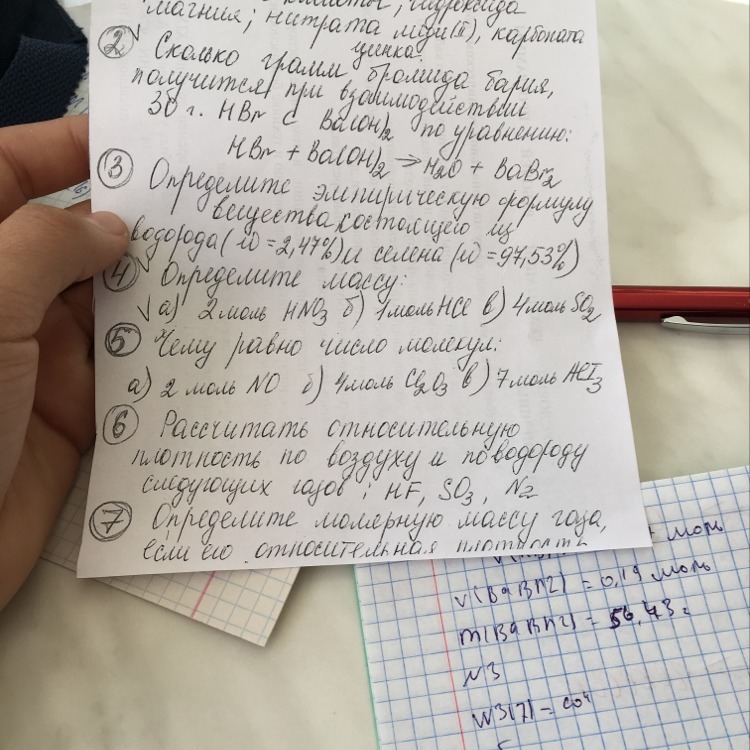 магния; нитрата меди(II), карбоната
цинка.
2 Сколько грамм бромида бария,
получится при взаимодействии
30 г. HBr с Ba(OH)2 по уравнению:
HBr + Ba(OH)2 → H2O + BaBr2
3 Определите эмпирическую формулу
вещества, состоящего из
водорода (w = 2,47%) и селена (w = 97,53%)
4 Определите массу:
а) 2 моль HNO3 б) 1 моль HCl в) 4 моль SO2
5 Чему равно число молекул:
а) 2 моль NO б) 4 моль Cl2O3 в) 7 моль
6 Рассчитать относительную
плотность по воздуху и по водороду
следующих газов: HF, SO3, N2
7 Определите молярную массу газа,
если его относительная плотность
моль
ν(BaBr2) = 0,19 моль
m(BaBr2) = 56,43 г
N3